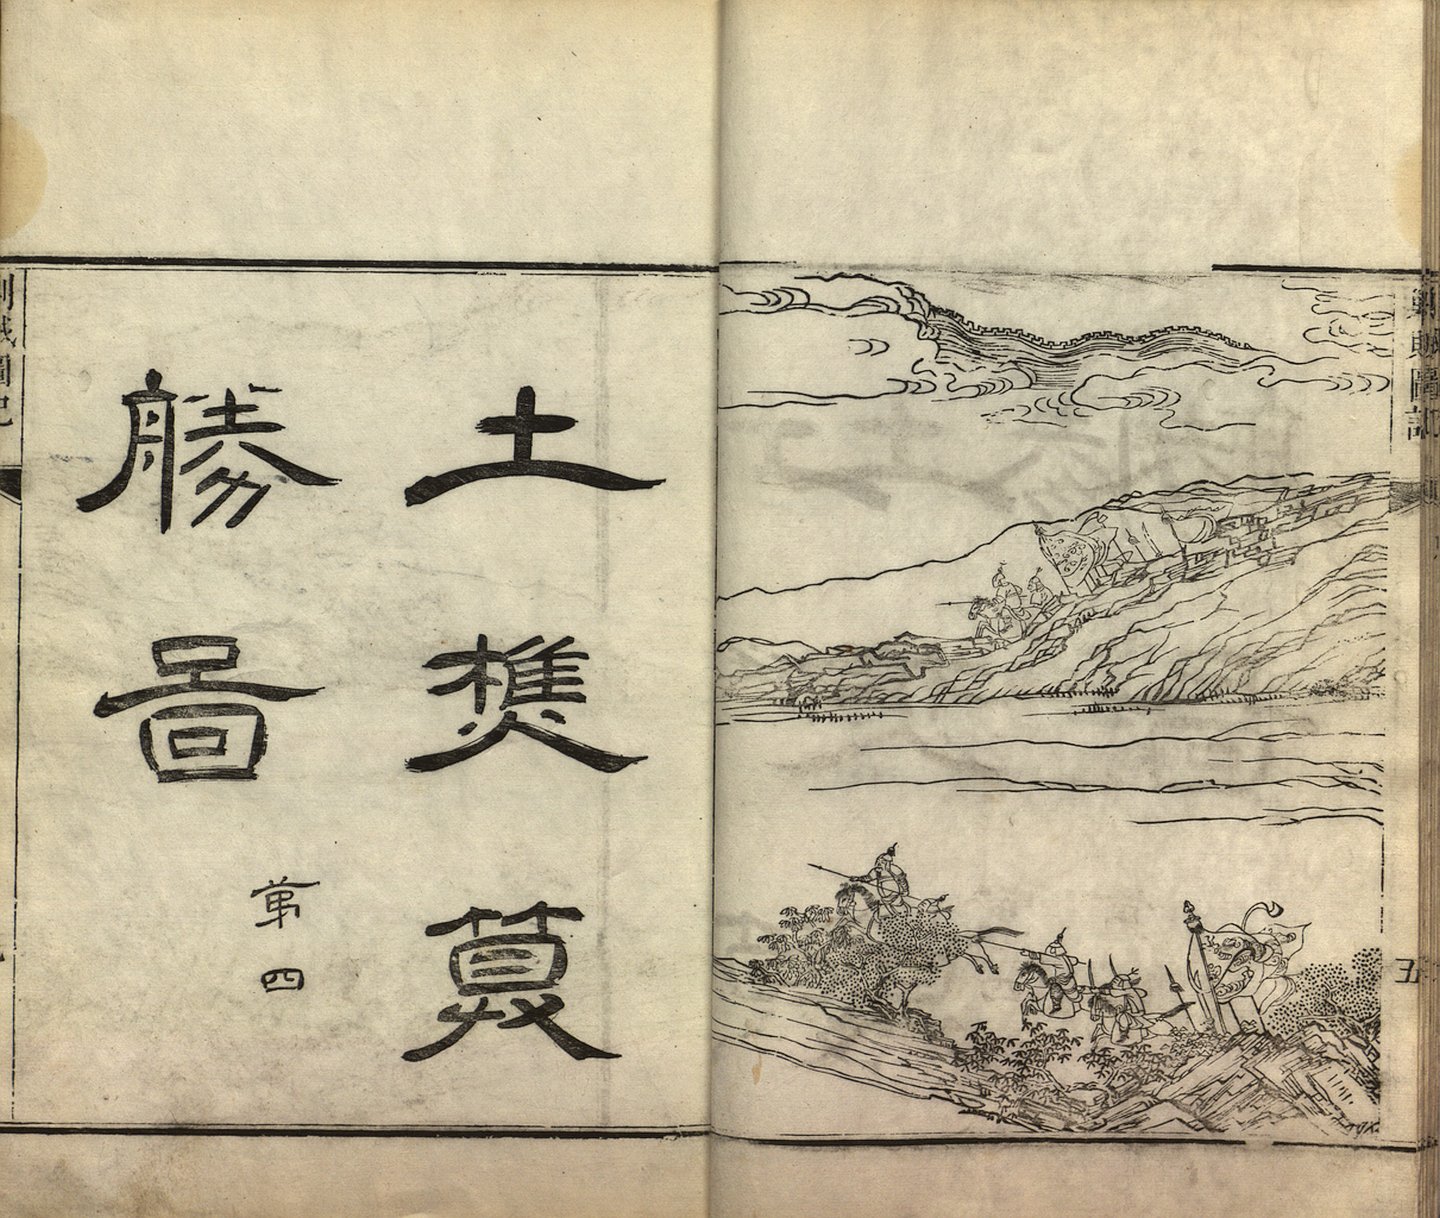 剿賊圖記
五
土樵
勝啚
第四
剿賊圖記